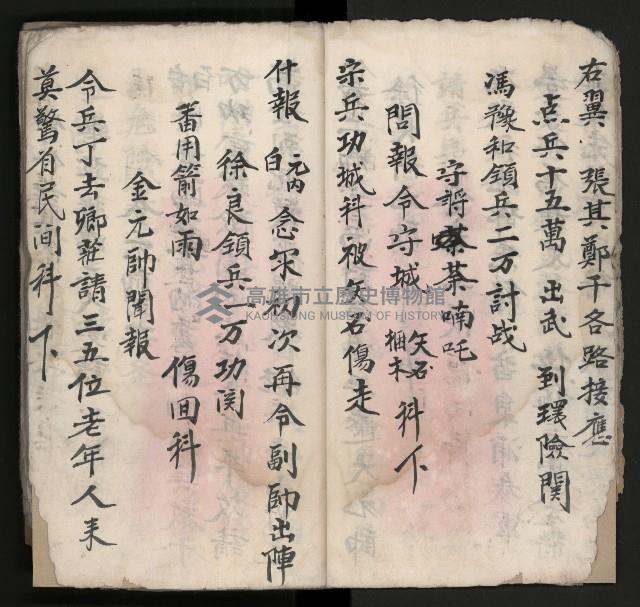 右翼 張其鄭千各路接應
点兵十五萬 出武 到環險関
馮豫和領兵二万討战
守将蔡茶喃吒
問報令守城 矢石 橊木 科下
宗兵功城科被矢石傷走
什報 元内白 念宋初次再令副帥出陣
徐良領兵一万功関
番用箭如雨 傷回科
金元帥聞報
令兵丁去鄉莊請三五位老年人来
莫驚百民间科下
高雄市立歷史博物館
KAOHSIUNG MUSEUM OF HISTORY